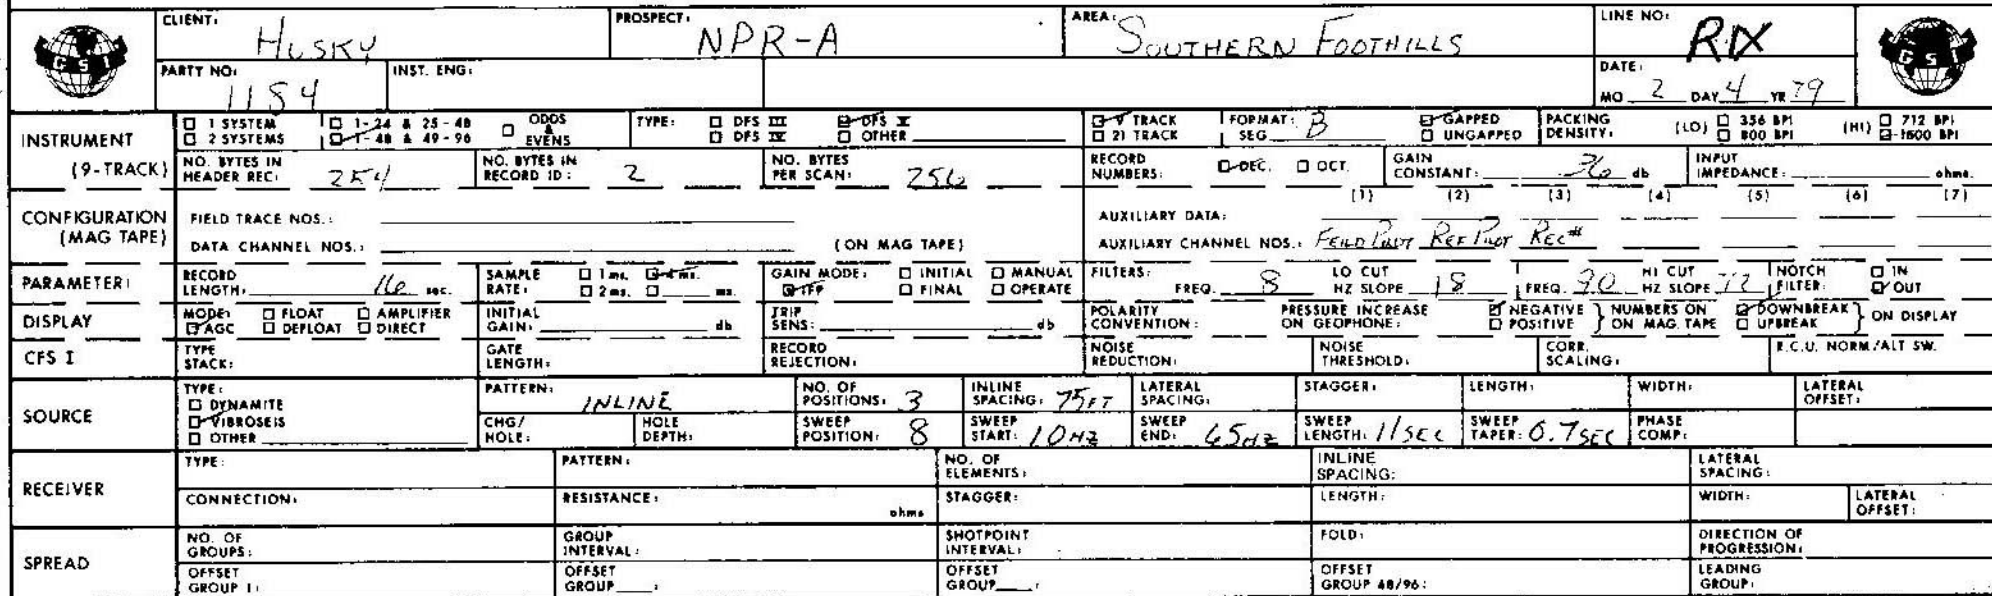 CLIENT: HUSKY PROSPECT: NPR-A AREA: SOUTHERN FOOTHILLS LINE NO:
GSI
PARTY NO: 1184 INST. ENG: DATE: MO 2 DAY 4 YR 79
GSI
INSTRUMENT (9-TRACK)
1 SYSTEM 1-24 & 25-48 ODDS & EVENS TYPE: DFS III DFS V 9 TRACK FORMAT: SEG B GAPPED PACKING DENSITY: (LO) 356 BPI (HI) 712 BPI
2 SYSTEMS 1-48 & 49-96 DFS IV OTHER 21 TRACK UNGAPPED 800 BPI 1600 BPI
NO. BYTES IN HEADER REC: 254 NO. BYTES IN RECORD ID: 2 NO. BYTES PER SCAN: 256 RECORD NUMBERS: DEC. OCT. GAIN CONSTANT: 36 db INPUT IMPEDANCE: ohms.
CONFIGURATION (MAG TAPE)
(1) (2) (3) (4) (5) (6) (7)
FIELD TRACE NOS.: AUXILIARY DATA:
DATA CHANNEL NOS.: (ON MAG TAPE) AUXILIARY CHANNEL NOS.: FEILD PILOT REF PILOT REC#
PARAMETER: RECORD LENGTH: 16 sec. SAMPLE RATE: 1 ms. 4 ms. 2 ms. ms. GAIN MODE: INITIAL MANUAL IFP FINAL OPERATE FILTERS: FREQ. 8 LO CUT HZ SLOPE 18 FREQ. 90 HI CUT HZ SLOPE 72 NOTCH FILTER: IN OUT
DISPLAY MODE: FLOAT AMPLIFIER AGC DEFLOAT DIRECT INITIAL GAIN: db TRIP SENS: db POLARITY CONVENTION: PRESSURE INCREASE ON GEOPHONE: NEGATIVE POSITIVE NUMBERS ON MAG. TAPE DOWNBREAK UPBREAK ON DISPLAY
CFS I TYPE STACK: GATE LENGTH: RECORD REJECTION: NOISE REDUCTION: NOISE THRESHOLD: CORR. SCALING: R.C.U. NORM/ALT SW.
SOURCE TYPE: DYNAMITE VIBROSEIS OTHER
PATTERN: INLINE NO. OF POSITIONS: 3 INLINE SPACING: 75FT LATERAL SPACING: STAGGER: LENGTH: WIDTH: LATERAL OFFSET:
CHG/HOLE: HOLE DEPTH: SWEEP POSITION: 8 SWEEP START: 10HZ SWEEP END: 65HZ SWEEP LENGTH: 11SEC SWEEP TAPER: 0.7SEC PHASE COMP:
RECEIVER TYPE: PATTERN: NO. OF ELEMENTS: INLINE SPACING: LATERAL SPACING:
CONNECTION: RESISTANCE: ohms STAGGER: LENGTH: WIDTH: LATERAL OFFSET:
SPREAD NO. OF GROUPS: GROUP INTERVAL: SHOTPOINT INTERVAL: FOLD: DIRECTION OF PROGRESSION:
OFFSET GROUP 1: OFFSET GROUP : OFFSET GROUP : OFFSET GROUP 48/96: LEADING GROUP: